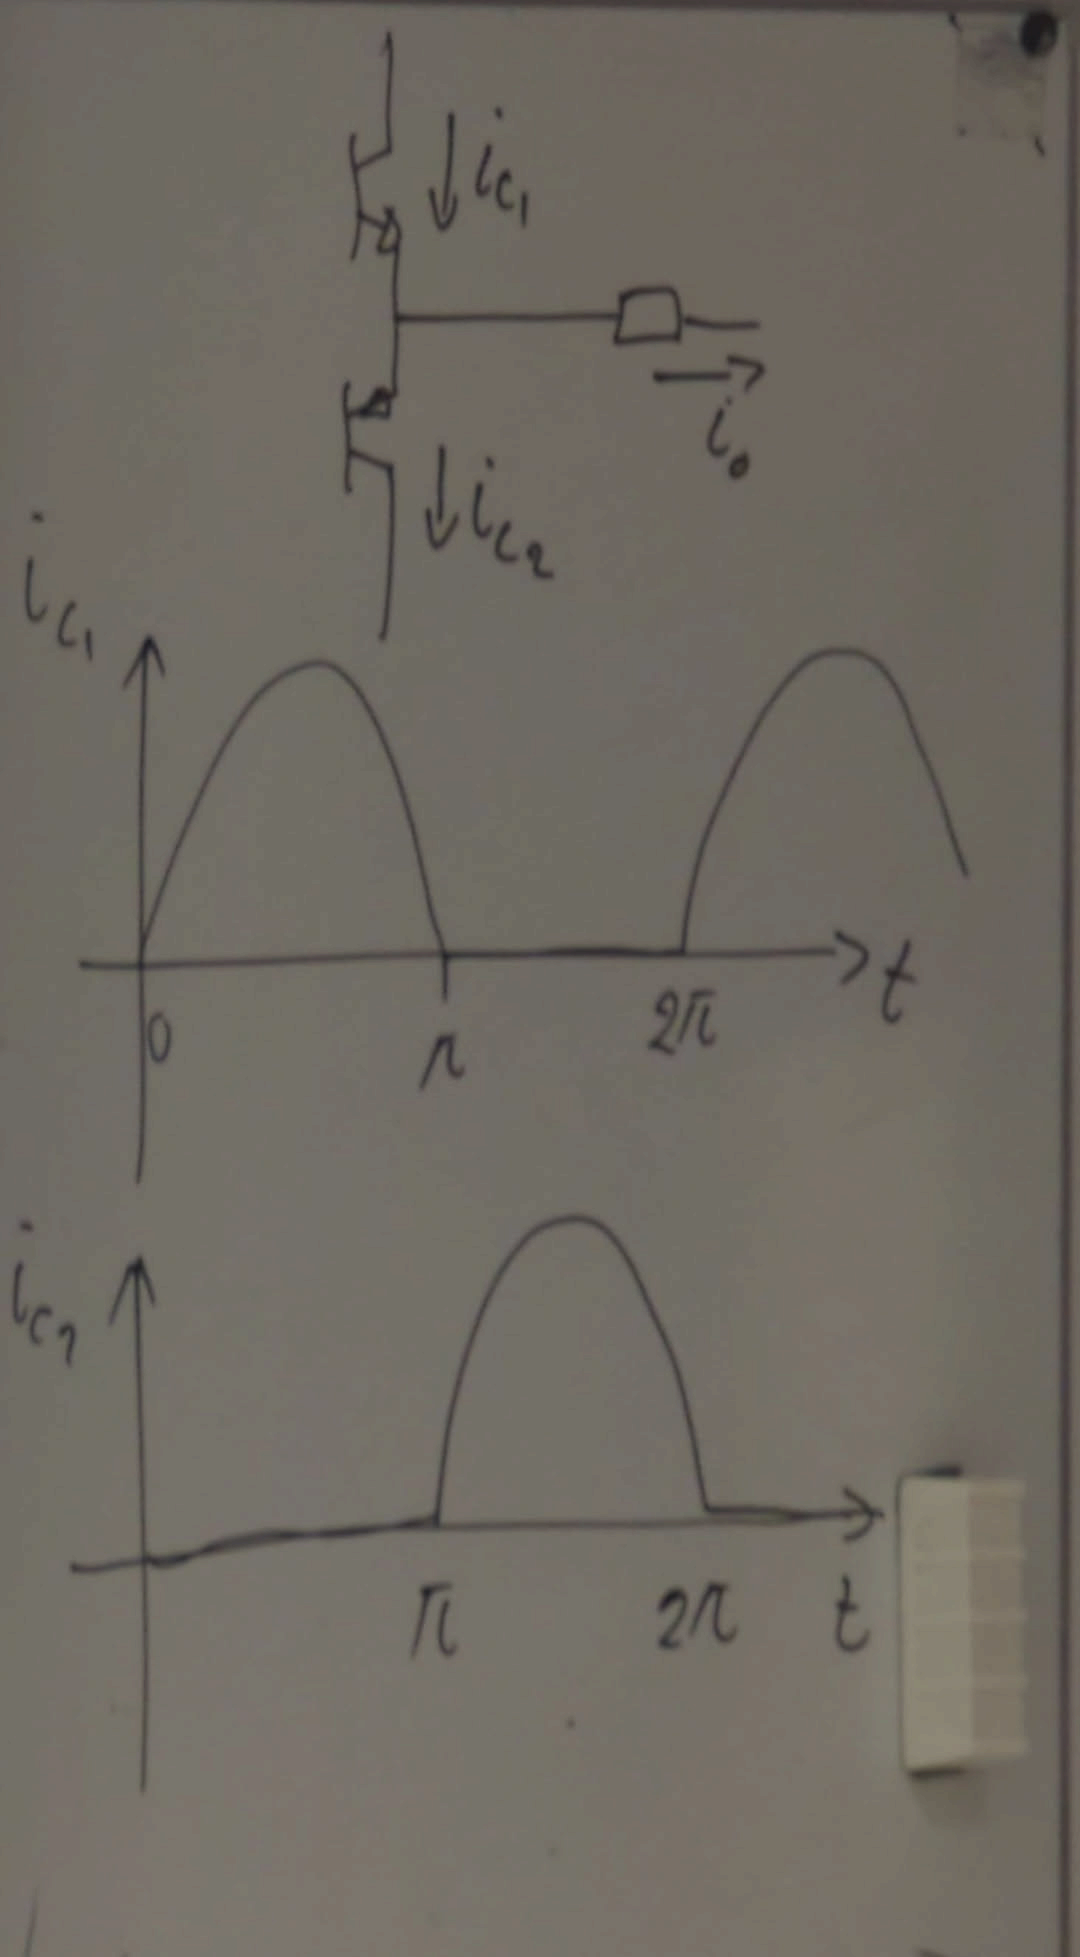 i_C1
i_o
i_C2
i_C1
0
π
2π
t
i_C2
π
2π
t